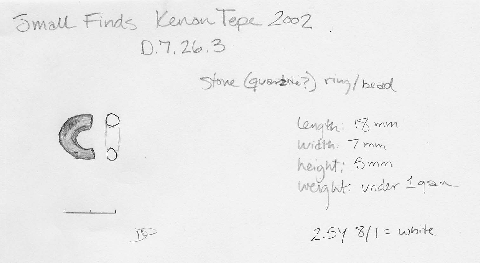 Small Finds Kenan Tepe 2002.
D.7.26.3
stone (quartz?) ring/bead
length: 13 mm
width: 7 mm
height: 5 mm
weight: under 1 gram
2.5Y 8/1 = white